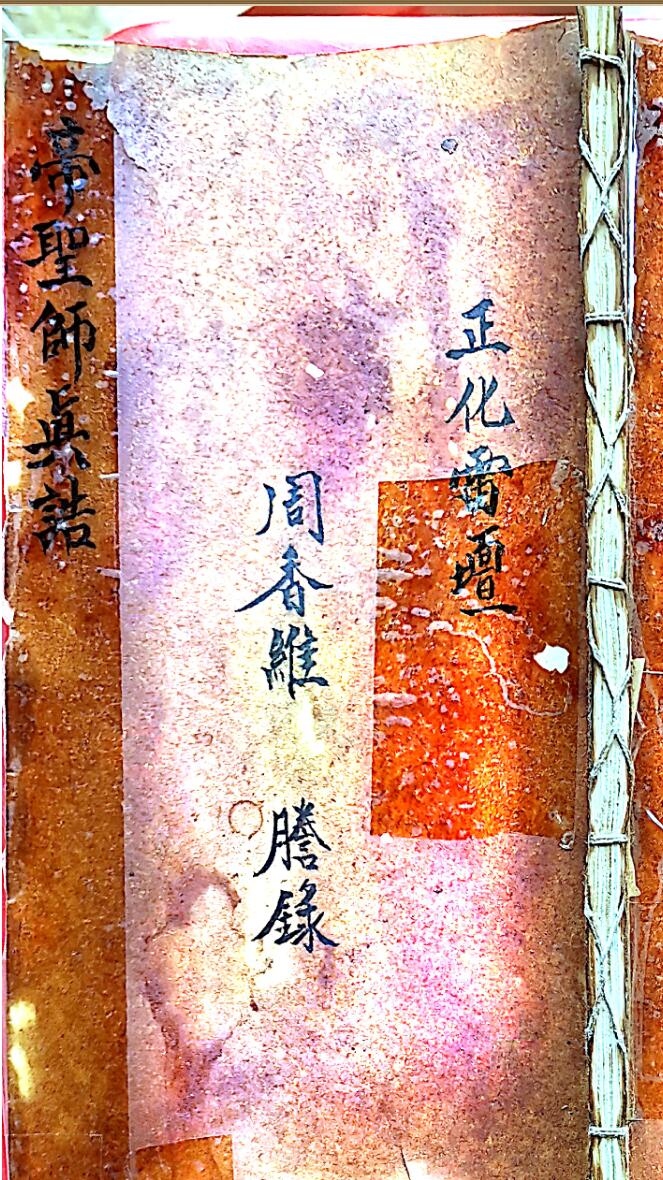 正化雷壇
周香維 謄錄
帝聖師眞誥